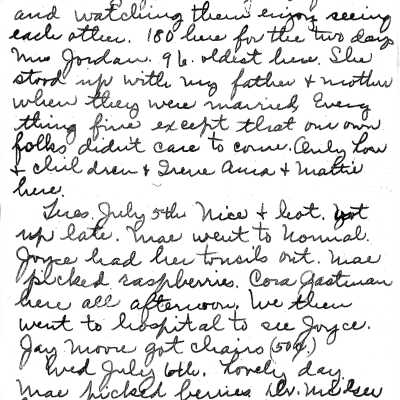 and watching them enjoy seeing
each other. 180 here for the two days
Mrs Jordan. 96. oldest here. She
stood up with my father & mother
when they were married. Every
thing fine except that our own
folks didn't care to come. Only Lou
& children & Irene Aura & Mattie
here.
Tues. July 5th Nice & hot. Got
up late. Mae went to Normal.
Joyce had her tonsils out. Mae
picked raspberries. Cora Gastman
here all afternoon. We then
went to hospital to see Joyce.
Jay Moore got chairs (50¢.)
Wed July 6th. Lovely day.
Mae picked berries. Dr.